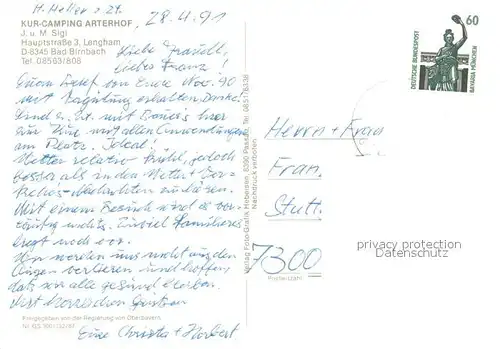 H. Heller z. Zt.
28.4.91
KUR-CAMPING ARTERHOF
J. u. M. Sigl
Hauptstraße 3, Lengham
D-8345 Bad Birnbach
Tel. 08563/808
Liebe Traudl,
Liebes Franz!
Euern Brief von Ende Nov. 90
mit Vergütung erhalten, Danke.
Sind z. Zt. mit hier
zur Kur mit allen Anwendungen
am Platz. Ideal!
Wetter relativ kühl, jedoch
besser als in den Wetter + Ver-
kehrs-Nachrichten zu hören.
Mit einem Besuch wird es vor-
läufig nichts. Zuviel Familiäres
liegt noch vor.
Wir wollen uns nicht aus den
Augen verlieren und hoffen,
daß wir alle gesund bleiben.
Mit herzlichen Grüßen
Eure Christa + Norbert
Freigegeben von der Regierung von Oberbayern
Verlag Foto-Grafik Hebeisen, 8390 Passau, Tel. 0851/
Nachdruck verboten
60
DEUTSCHE BUNDESPOST
BAVARIA MÜNCHEN
Herrn + Frau
Fran.
Stutt.
7300
Postleitzahl
privacy protection
Datenschutz